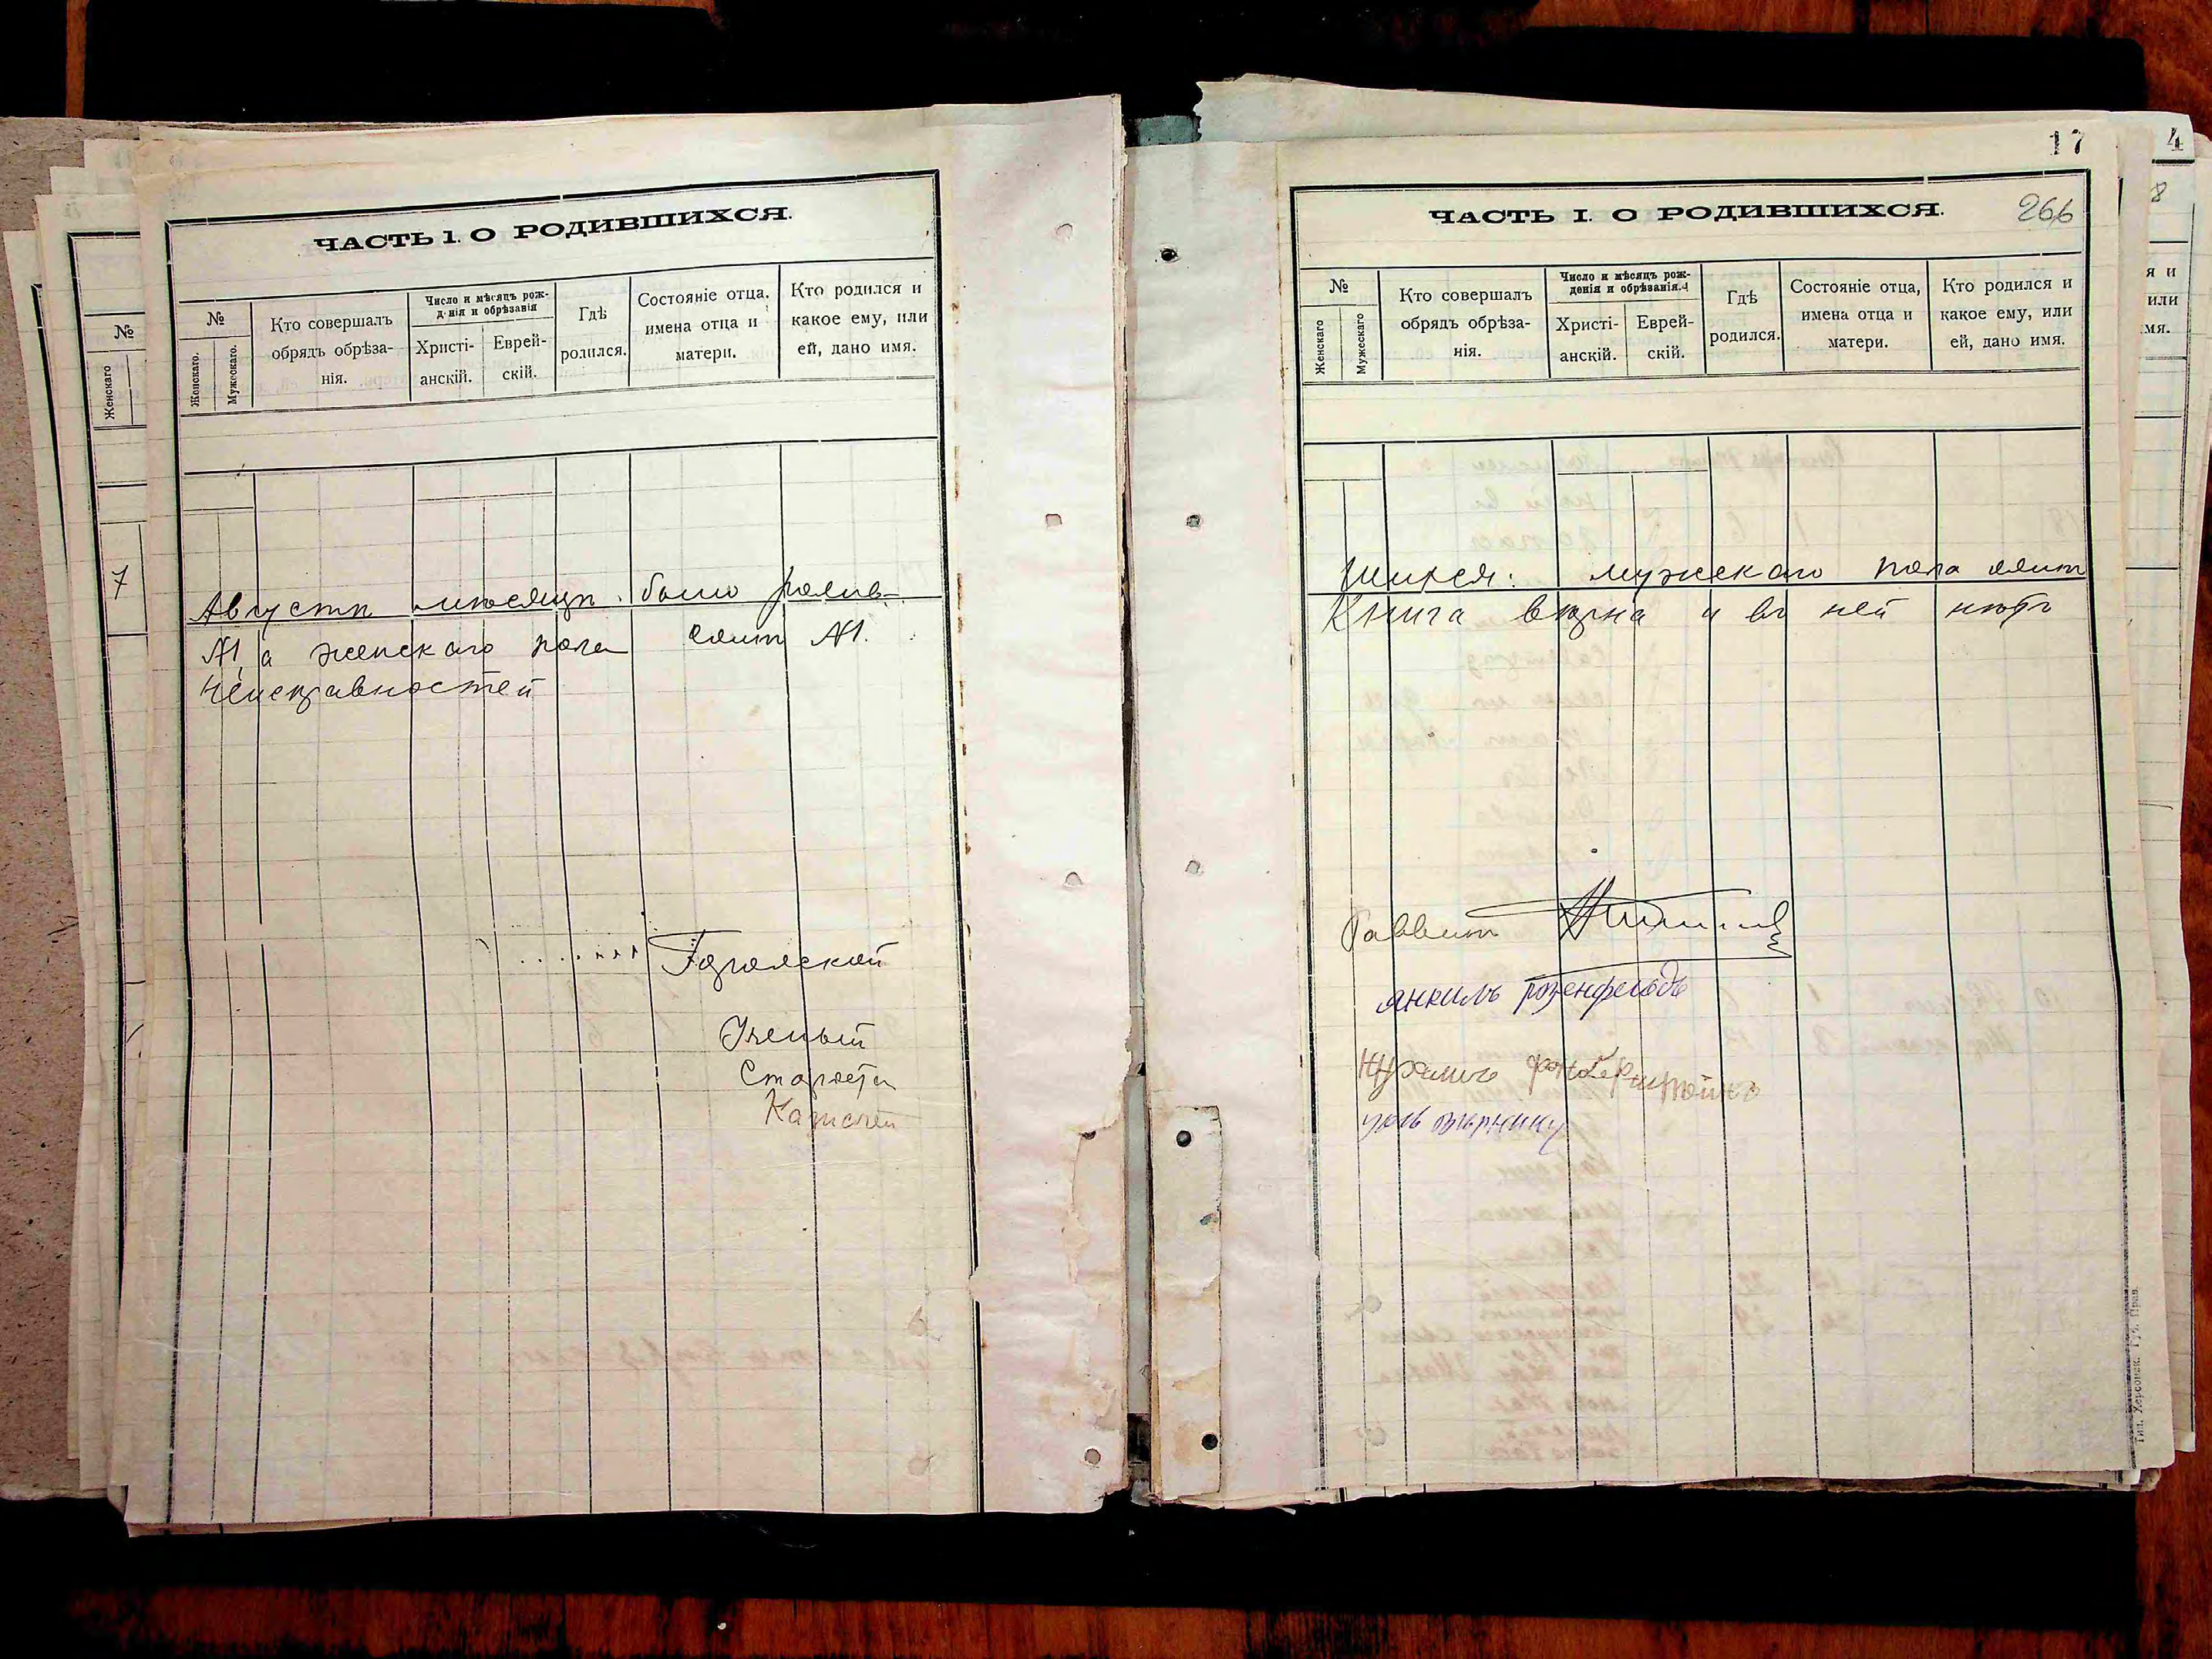 ЧАСТЬ 1. О РОДИВШИХСЯ.
№
Женскаго.
Мужескаго.
Кто совершалъ
обрядъ обрѣза-
нія.
Число и мѣсяцъ рож-
д нія и обрѣзанія
Христі-
анскій.
Еврей-
скій.
Гдѣ
родился.
Состояніе отца,
имена отца и
матери.
Кто родился и
какое ему, или
ей, дано имя.
№
Женскаго
7
мѣсяца было родив-
№1, а женскаго пола один №1.
неисправностей
Ученый
Староста
Казначей
17
4
ЧАСТЬ I. О РОДИВШИХСЯ.
266
8
№
Женскаго
Мужескаго
Кто совершалъ
обрядъ обрѣза-
нія.
Число и мѣсяцъ рож-
денія и обрѣзанія.
Христі-
анскій.
Еврей-
скій.
Гдѣ
родился.
Состояніе отца,
имена отца и
матери.
Кто родился и
какое ему, или
ей, дано имя.
я и
или
мя.
шихся: мужескаго пола один
Книга вѣрна и въ ней нѣтъ
Раввин
Янкиль Розенфельдъ
Тип. Херсонск. Губ. Прав.